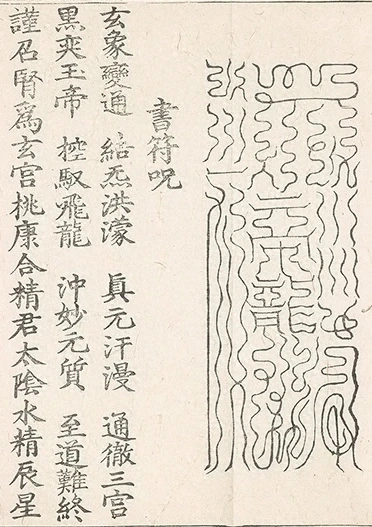 書符呪
玄象變通 結炁洪濛 真元汗漫 通徹三宮
黑奕王帝 控馭飛龍 沖妙元質 至道難終
謹召腎為玄宮桃康合精君太陰水精辰星